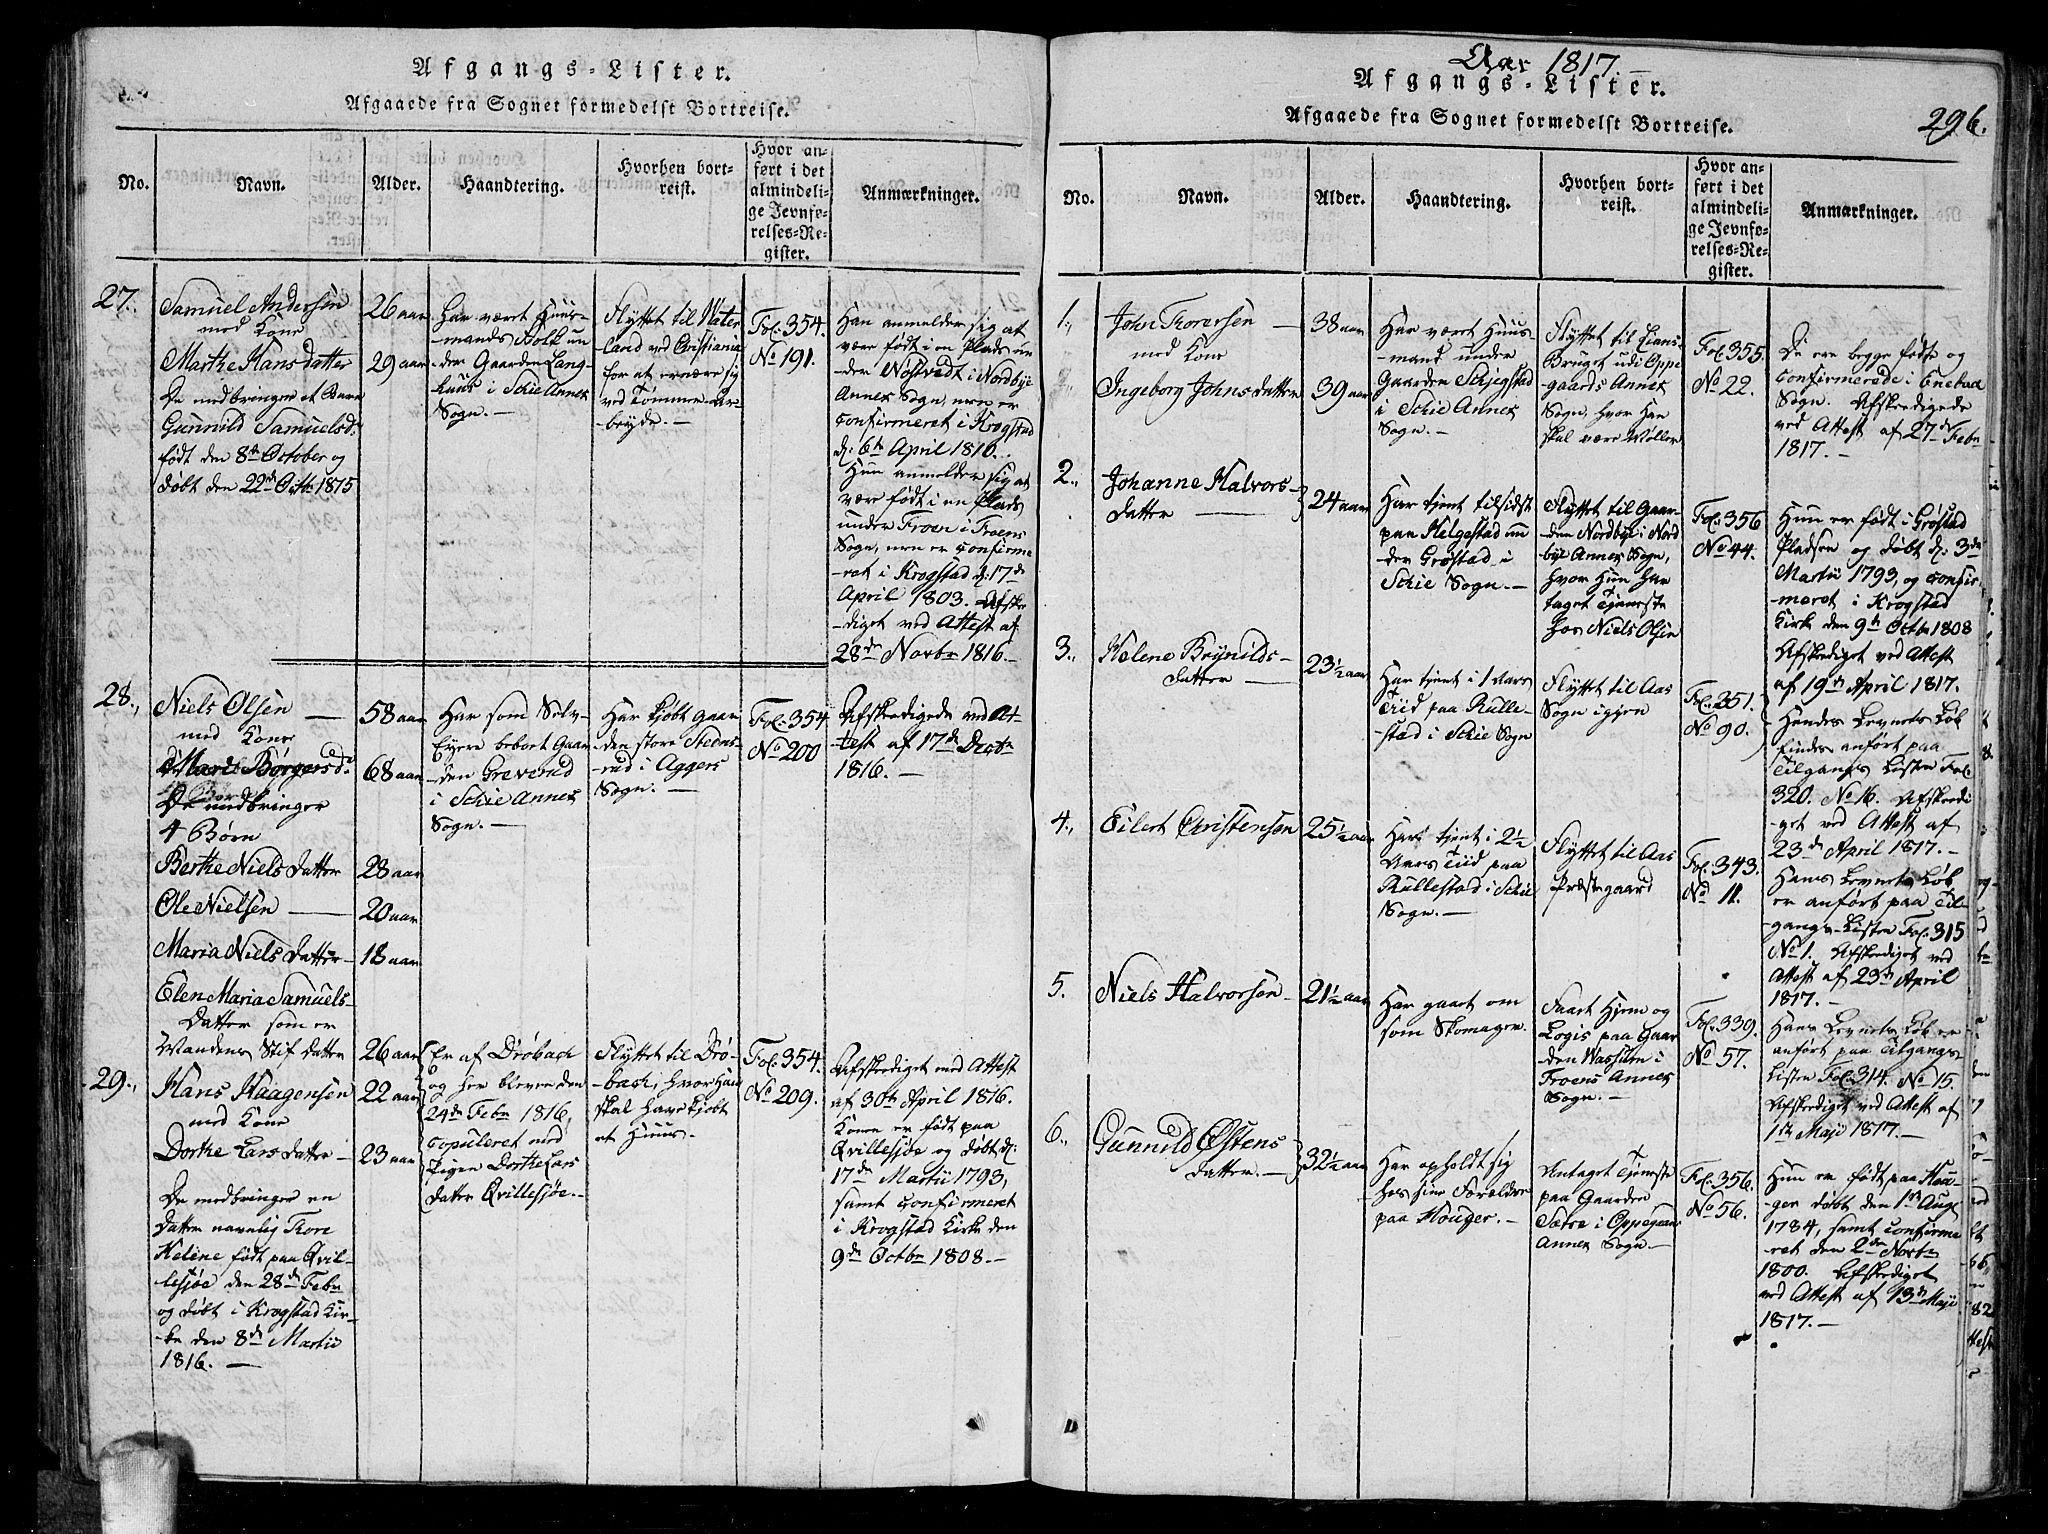 Afgangs-Lister.
Afgaaede fra Sognet formedelst Bortreise.
No.
Navn.
Alder.
Haandtering.
Hvorhen bort-
reist.
Hvor an-
ført i det
almindeli-
ge Jevnfø-
relses-Re-
gister.
Anmærkninger.
27.
Samuel Andersen
med Kone
Marthe Hansdatter
De medbringer et Barn
Gunnild Samuelsd.
født den 8de October og
døbt den 22de Octbr 1815
26 aar
29 aar
Har været Huus-
mands Folk un
der Gaarden Lang-
huus i Schie Annex
Sogn.-
Flyttet til Water
land ved Christiania
for at ernære sig
ved Tømmer-Ar-
beyde.-
Fol: 354.
No 191.
Han anmelder sig at
være født i en Plads un
der Nøstvedt i Nordbye
Annex Sogn, men er
confirmeret i Krogstad
d: 6te April 1810.
Hun anmelder sig at
være født i en Plads
under Froen i Froens
Sogn, men er confirme
-ret i Krogstad d: 17de
April 1803. Afske
-diget ved Attest af
28de Novbr 1816.-
28.,
Niels Olsen
med Kone
Mari Børgersd.
De medbringer
4 Børn
Berthe Niels datter
Ole Nielsen
Maria Niels datter-
Elen Maria Samuels-
datter som er
Mandens Stif datter
58 aar
68 aar
28 aar
20 aar
18 aar
26 aar
Har som Selv-
Eyere beboet Gaar
-den Greverud
i Schie Annex
Sogn.-
Har kjøbt Gaar
-den store Steens-
rud i Aggers
Sogn.-
Fol: 354
No 200
Afskedigede ved At-
test af 17de Decbr
1816.-
29.,
Hans Haagensen
med Kone
Dorthe Lars datter-
De medbringer en
datter navnlig Thore
Helene født paa Qvil-
lesjøe den 28de Febr
og døbt i Krogstad Kir-
-ke den 8de Martii
1816.-
22 aar
23 aar
Er af Drøbach
og her bleven den
24de Febr 1816
copuleret med
Pigen Dorthe Lars
datter Qvillesjøe.-
Flyttet til Drø-
-bach, hvor Han
skal have kjøbt
et Huus.-
Fol: 354.
No 209.
Afskediget med Attest
af 30te April 1816.
Konen er født paa
Qvillesjøe og døbt d:
17de Martii 1793,
samt confirmeret
i Krogstad Kirke den
9de Octbr 1808.-
Aar 1817
Afgangs-Lister.
Afgaaede fra Sognet formedelst Bortreise.
296.
No.
Navn.
Alder.
Haandtering.
Hvorhen bort-
reist.
Hvor an-
ført i det
almindeli-
ge Jevnfø-
relses-Re-
gister.
Anmærkninger.
1.,
John Thorersen
med Kone
Ingeborg Johns datter
38 aar
39 aar
Har været Huus
-mand under
Gaarden Schjegstad
i Schie Annex
Sogn.-
Flyttet til Lians-
Bruget udi Oppe
-gaards Annex
Sogn, hvor Han
skal være Møller
Fol: 355.
No 22.
De ere begge fødte og
confirmerede i Enebak
Sogn. Afskedigede
ved Attest af 27de Febr
1817.-
2.,
Johanne Halvors-
datter
24 aar
Har tjent tilsidst
paa Helgestad un
der Grøstad i
Schie Sogn.-
Flyttet til Gaar-
den Nordbye i Nord
bye Annex Sogn,
hvor Hun har
taget Tjeneste
hos Niels Olsen
Fol: 356
No 44.
Hun er født i Grøstad
Pladsen og døbt d: 3de
Martii 1793, og confir
-meret i Krogstad
Kirke den 9de Octbr 1808
Afskediget ved Attest
af 19de April 1817.
3.,
Helene Brynilds-
datter
23½ aar
Har tjent i 1 Aars
Tiid paa Rulle-
-stad i Schie Sogn
Flyttet til Aas
Sogn igjen
Fol: 351.
No 90.
Hendes Levnets Løb
findes anført paa
Tilgangs Listen Fol.
320. No 16. Afskedi
-get ved Attest af
23de April 1817.-
4.,
Eilert Christensen
25½ aar
Har tjent i 2½
Aars Tiid paa
Rullestad i Schie
Sogn.-
Flyttet til Aas
Præstegaard
Fol: 343.
No 11.
Hans Levnets Løb
er anført paa Til-
gangs-Listen Fol: 315
No 1. Afskediget ved
Attest af 23de April
1817.-
5.
Niels Halvorsen-
21½ aar
Har gaaet om
som Skomager.
Faaet Hjem og
Logis paa Gaar
den Wassum i
Froens Annex
Sogn.-
Fol: 339.
No 57.
Hans Levnets Løb er
anført paa Tilgangs-
Listen Fol: 314. No 15.
Afskediget ved Attest af
1ste Maji 1817.-
6.,
Gunnild Østens
datter.-
32½ aar
Har opholdt sig
hos sine Forældre
paa Houger.-
Antaget Tjeneste
paa Gaarden
Sætre i Oppegaard
Annex Sogn-
Fol: 356.
No 56.
Hun er født paa Hou-
ger døbt den 1ste Aug
1784, samt confirme
ret den 2den Novbr
1800. Afskediget
ved Attest af 13de Maji
1817.-